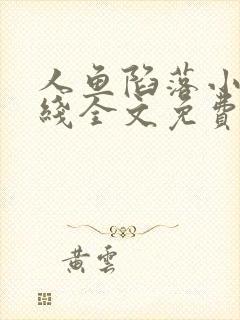 人鱼陷落小
綫全文免費
黄雲